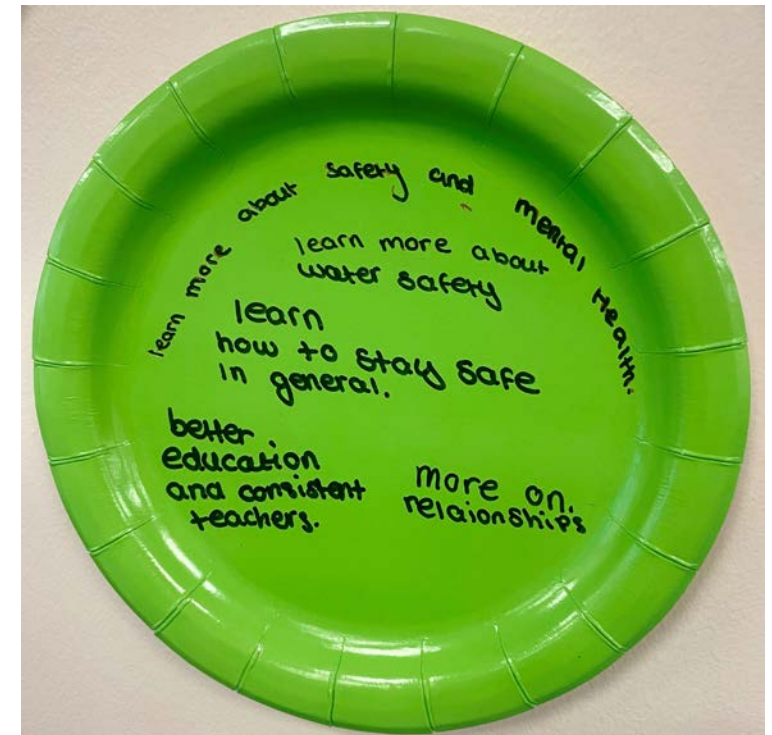 learn more about safety and mental Health.
learn more about
water safety
learn
how to stay safe
in general.
better
education
and consistent
teachers.
more on.
relaionships